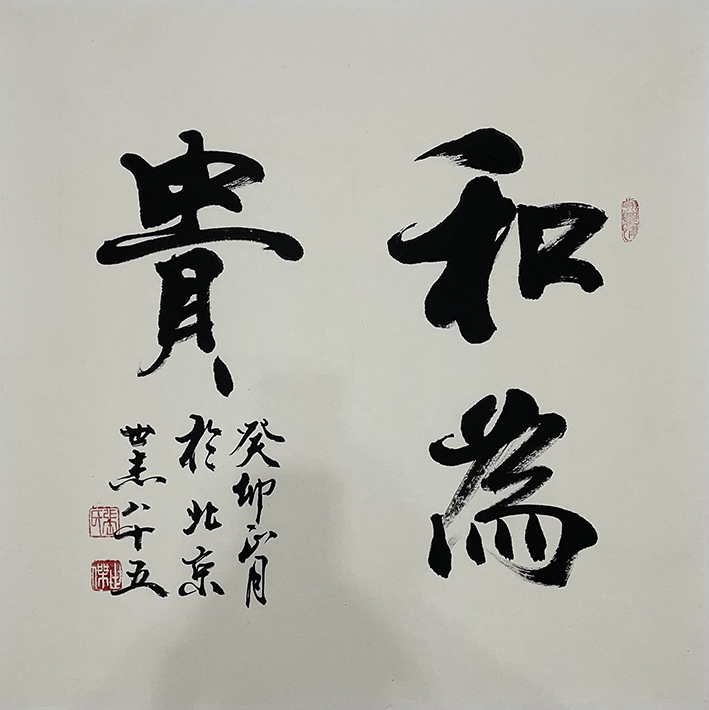 和為
貴
癸卯正月
於北京
世杰八十五
世傑